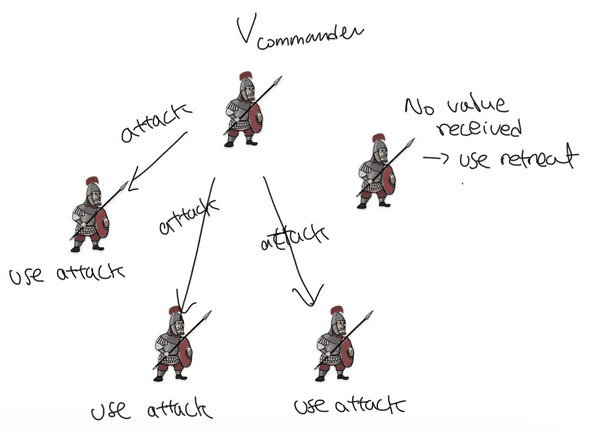 Vcommander
attack
No value
received
→ use retreat
attack
attack
use attack
use attack
use attack